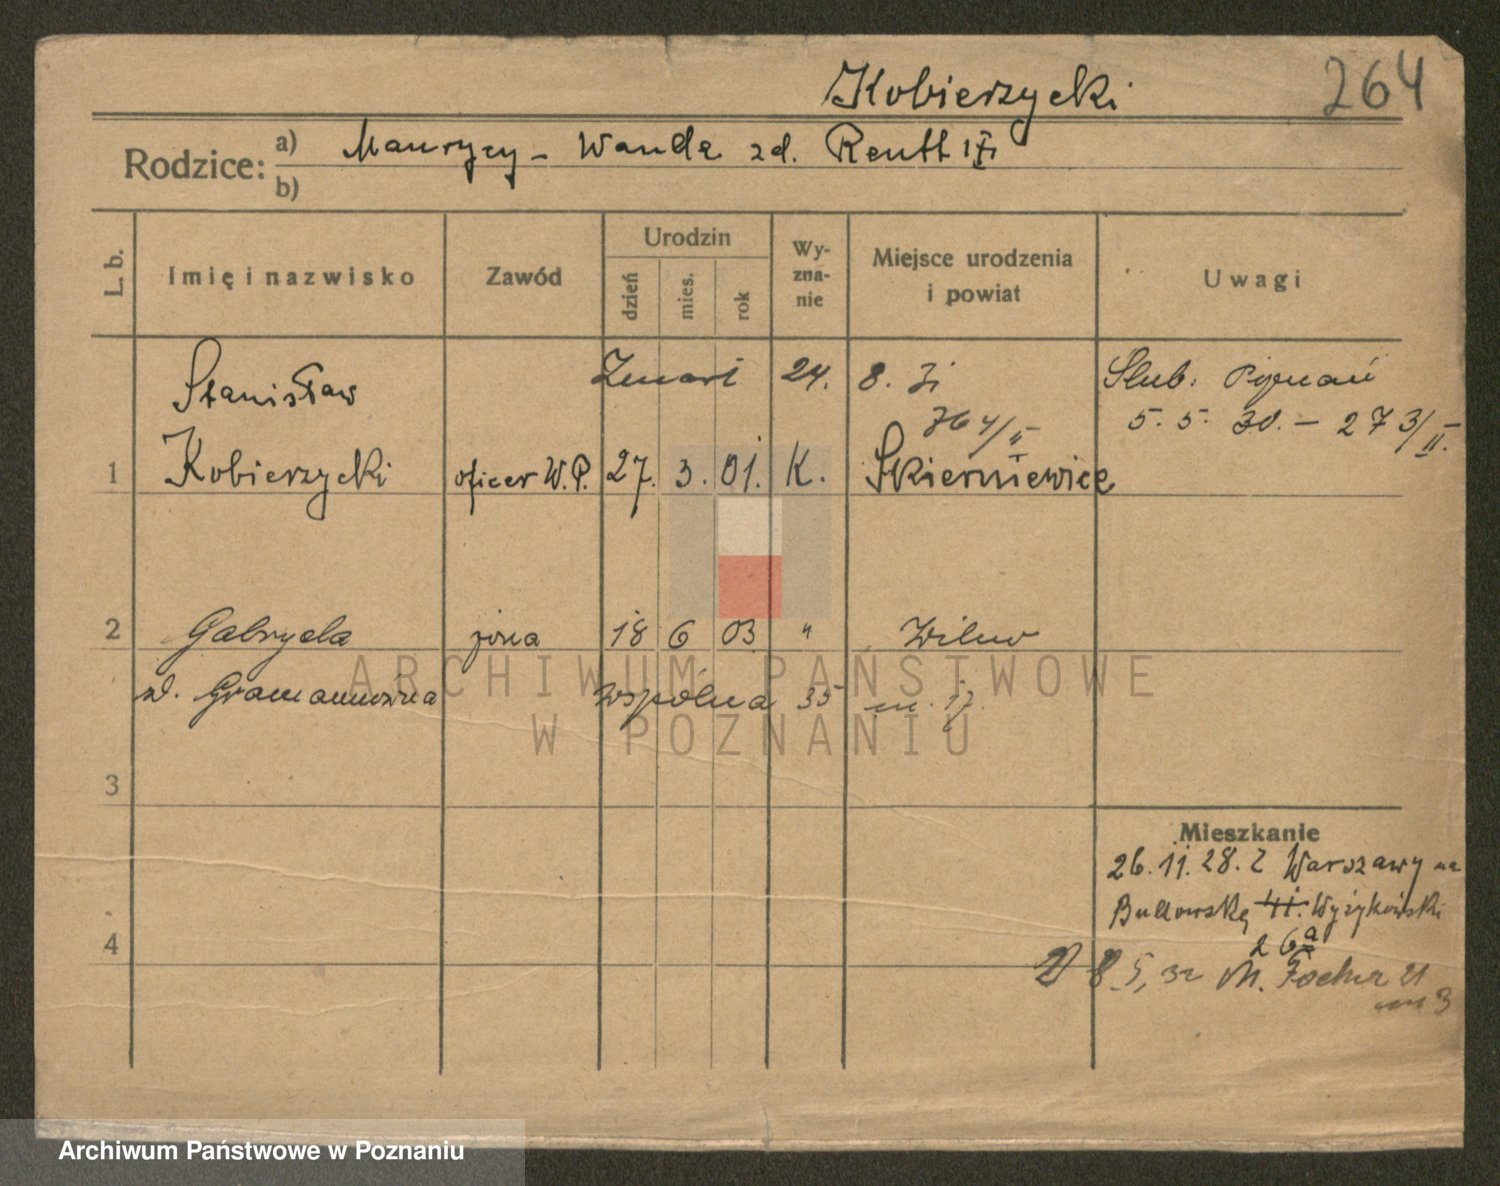 Kobierzycki
264
Rodzice: a) Maurycy - Wanda zd. Rentt
b)
L. b.
Imię i nazwisko
Zawód
Urodzin
dzień
mies.
rok
Wy-
zna-
nie
Miejsce urodzenia
i powiat
Uwagi
Stanisław
Zmarł 24. 8. 31
764/II
Ślub: Poznań
5. 5. 30. - 273/II.
1 Kobierzycki oficer W.P. 27. 3. 01. K. Skierniewice
2 Gabryela żona 18 6 03 " Wilno
zd. Gramannówna
Wspólna 35 m. 17.
3
Mieszkanie
26. 11. 28. Z Warszawy na
Bukowską 41. Wyżykowski
26a
4
8.5.32 M. Focha 21
m 3
ARCHIWUM PAŃSTWOWE
W POZNANIU
Archiwum Państwowe w Poznaniu